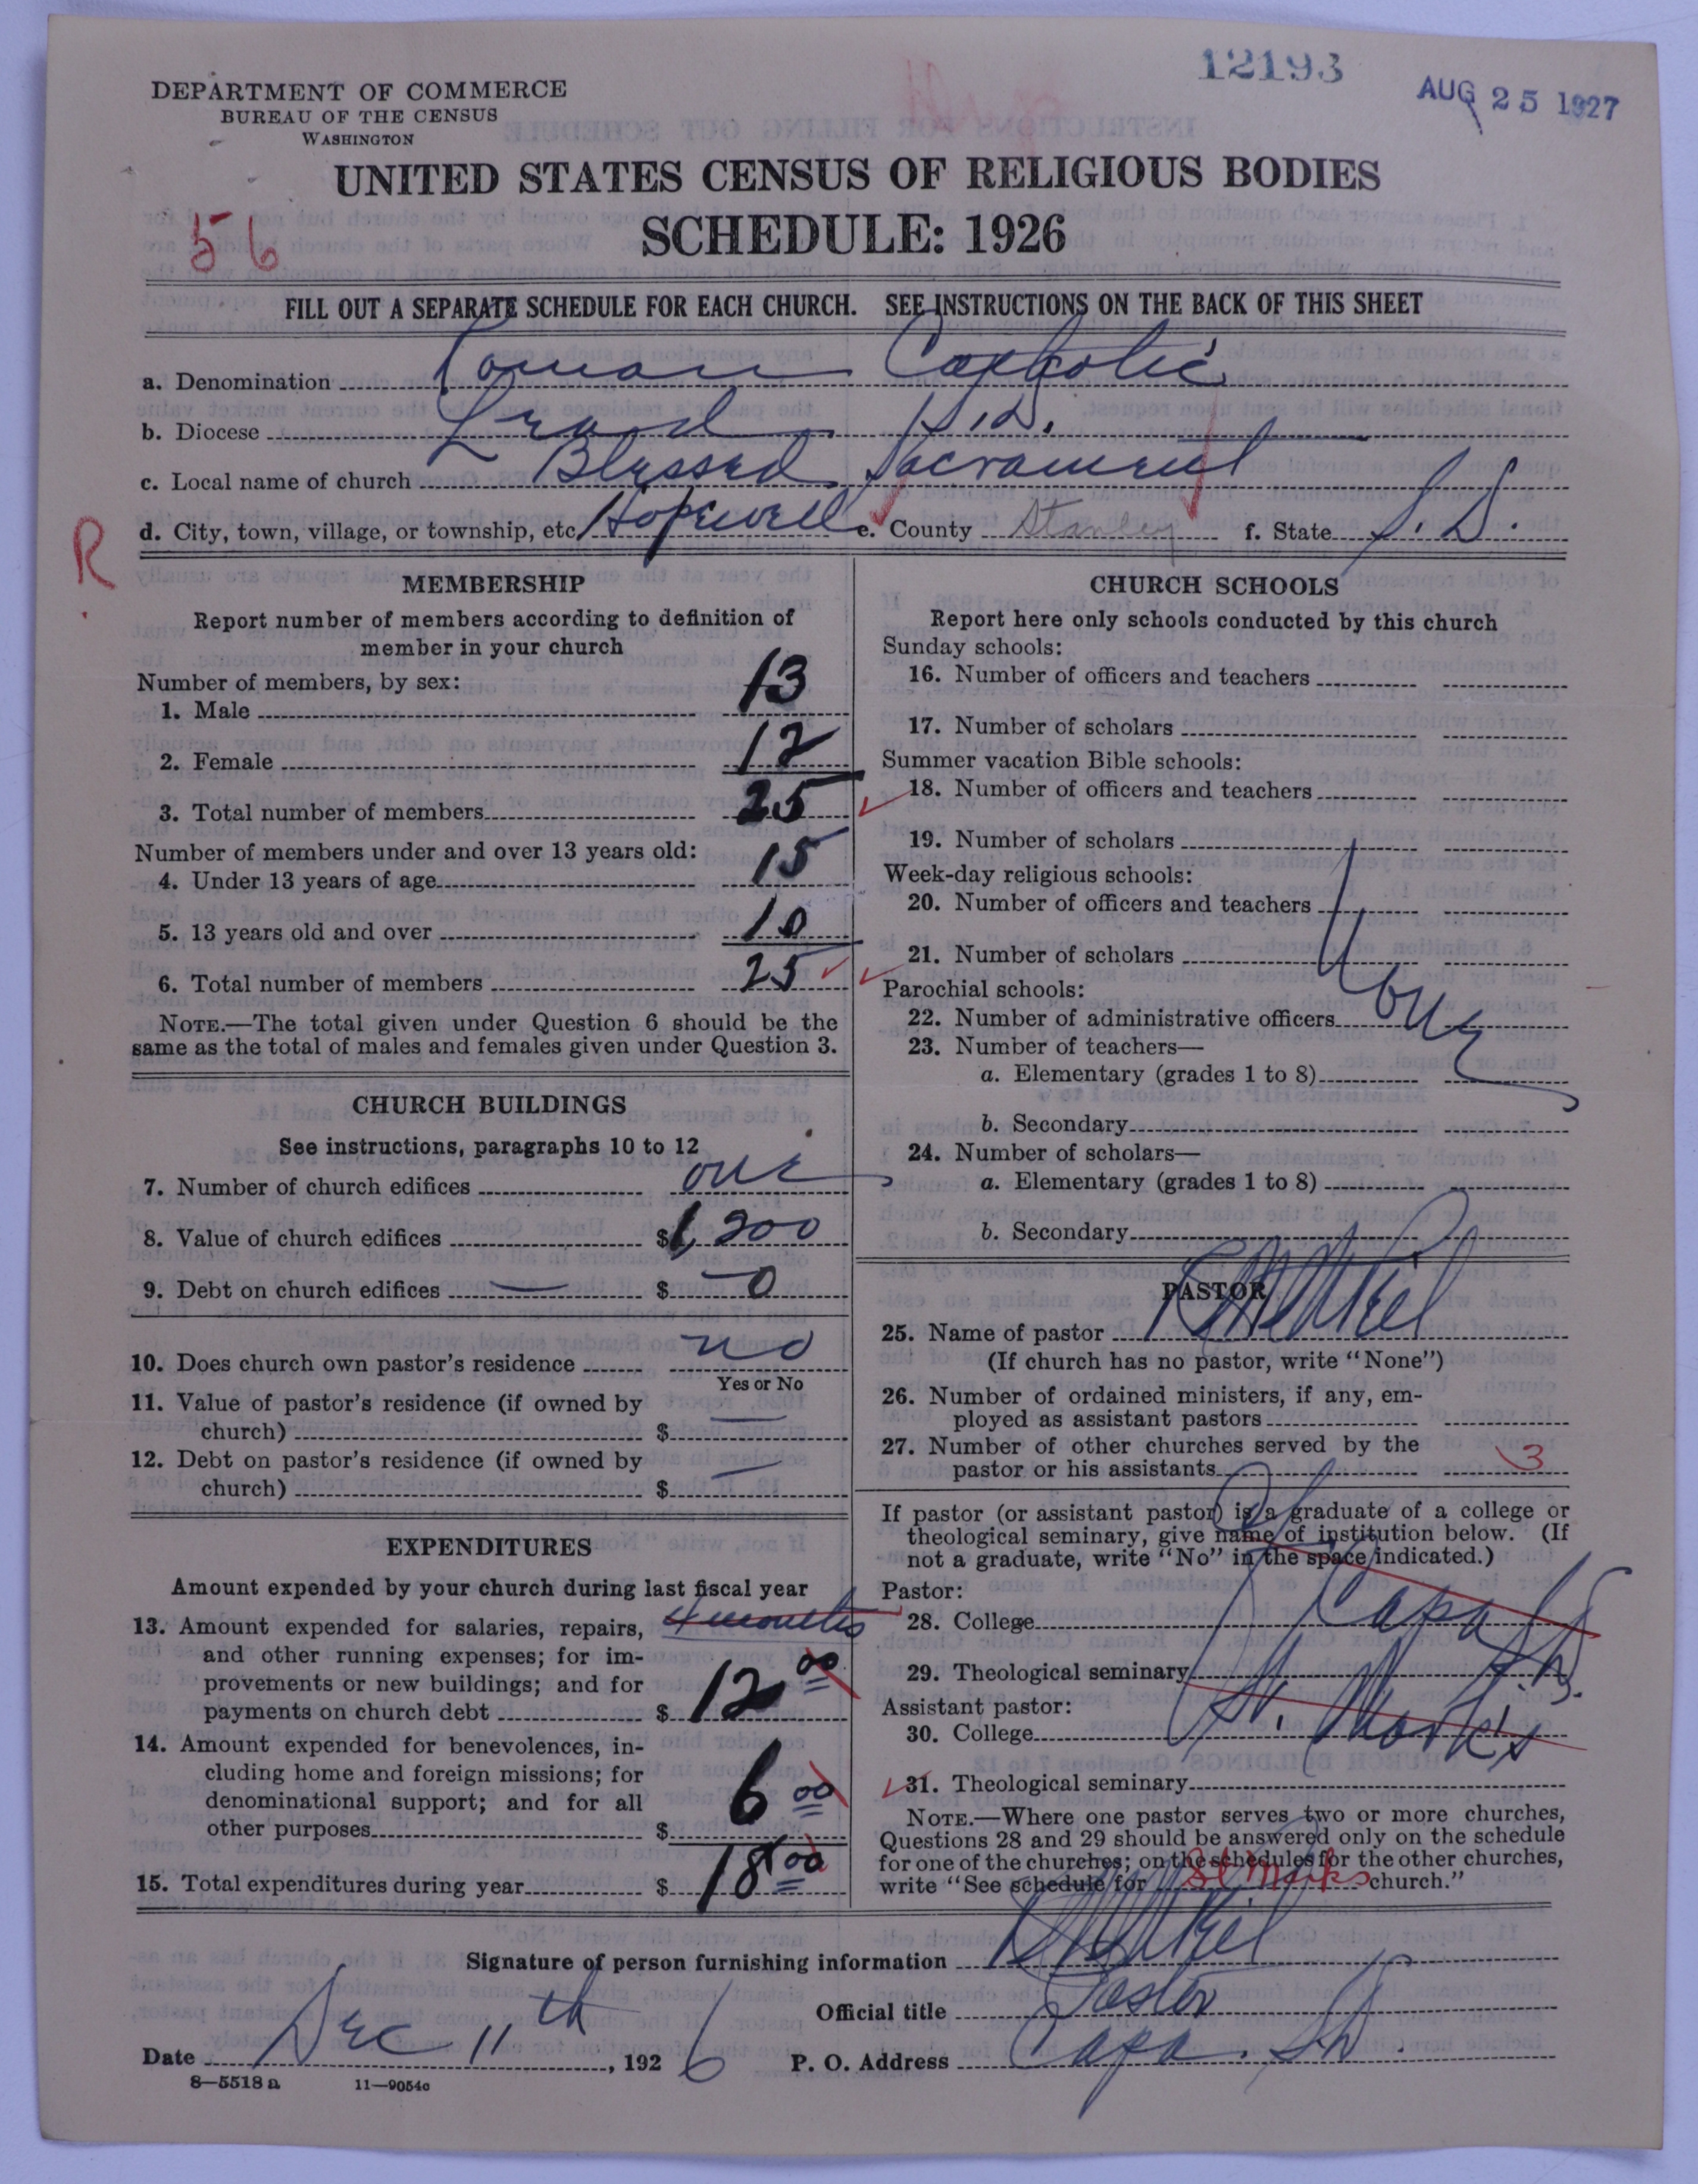 12193
AUG 25 1927
DEPARTMENT OF COMMERCE
BUREAU OF THE CENSUS
WASHINGTON
UNITED STATES CENSUS OF RELIGIOUS BODIES
SCHEDULE: 1926
56
FILL OUT A SEPARATE SCHEDULE FOR EACH CHURCH. SEE INSTRUCTIONS ON THE BACK OF THIS SHEET
a. Denomination Roman Catholic
b. Diocese Lead S.D.
c. Local name of church Blessed Sacrament
d. City, town, village, or township, etc. Hopewell e. County Stanley f. State S.D.
R
MEMBERSHIP
Report number of members according to definition of
member in your church
Number of members, by sex:
1. Male 13
2. Female 12
3. Total number of members 25
Number of members under and over 13 years old:
4. Under 13 years of age 15
5. 13 years old and over 10
6. Total number of members 25
NOTE.—The total given under Question 6 should be the
same as the total of males and females given under Question 3.
CHURCH BUILDINGS
See instructions, paragraphs 10 to 12
7. Number of church edifices one
8. Value of church edifices $1,200
9. Debt on church edifices — $ —0
10. Does church own pastor's residence no
Yes or No
11. Value of pastor's residence (if owned by
church) $ —
12. Debt on pastor's residence (if owned by
church) $ —
EXPENDITURES
Amount expended by your church during last fiscal year
4 months
13. Amount expended for salaries, repairs,
and other running expenses; for im-
provements or new buildings; and for
payments on church debt $ 12 00
14. Amount expended for benevolences, in-
cluding home and foreign missions; for
denominational support; and for all
other purposes $ 6 00
15. Total expenditures during year $ 18 00
CHURCH SCHOOLS
Report here only schools conducted by this church
Sunday schools:
16. Number of officers and teachers
17. Number of scholars
Summer vacation Bible schools:
18. Number of officers and teachers
19. Number of scholars
Week-day religious schools:
20. Number of officers and teachers
21. Number of scholars
Parochial schools:
22. Number of administrative officers
23. Number of teachers—
a. Elementary (grades 1 to 8)
b. Secondary
24. Number of scholars—
a. Elementary (grades 1 to 8)
b. Secondary
PASTOR
25. Name of pastor
(If church has no pastor, write "None")
26. Number of ordained ministers, if any, em-
ployed as assistant pastors
27. Number of other churches served by the
pastor or his assistants 3
If pastor (or assistant pastor) is a graduate of a college or
theological seminary, give name of institution below. (If
not a graduate, write "No" in the space indicated.)
Pastor:
28. College Capa
29. Theological seminary S.D.
Assistant pastor:
30. College St. Mark's
31. Theological seminary
NOTE.—Where one pastor serves two or more churches,
Questions 28 and 29 should be answered only on the schedule
for one of the churches; on the schedules for the other churches,
write "See schedule for St Marks church."
Signature of person furnishing information
Official title Pastor
Date Dec 11th, 1926 P. O. Address Capa. S.D.
8—5518 a 11—9054c